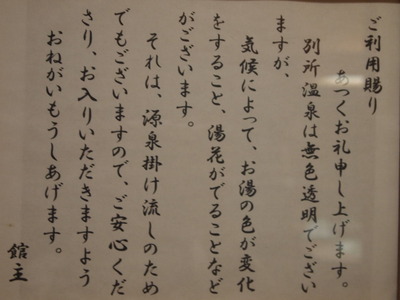 ご利用賜り
あつくお礼申し上げます。
別所温泉は無色透明でござい
ますが、
気候によって、お湯の色が変化
をすること、湯花がでることなど
がございます。
それは、源泉掛け流しのため
でもございますので、ご安心くだ
さり、お入りいただきますよう
おねがいもうしあげます。
館主